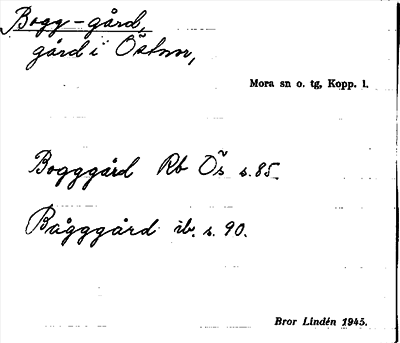 Bogg-gård,
gård i Östnor,
Mora sn o. tg, Kopp. l.
Bogggård Rb Ös s. 85
Bågggård ib. s. 90.
Bror Lindén 1945.